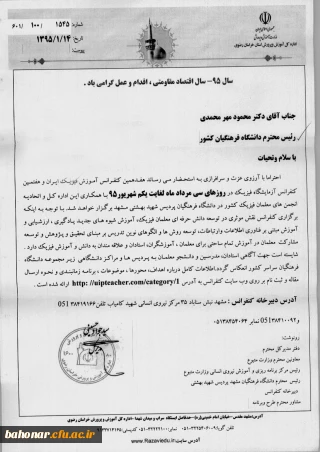 شماره: ۶۰۱/۱۰۰/۱۵۴۵
تاریخ: ۱۳۹۵/۱/۱۴
پیوست:
اداره کل آموزش و پرورش استان خراسان رضوی
سال ۹۵- سال اقتصاد مقاومتی ، اقدام و عمل گرامی باد .
جناب آقای دکتر محمود مهر محمدی
رئیس محترم دانشگاه فرهنگیان کشور
با سلام وتحیات
احتراما با آرزوی عزت و سرافرازی به استحضار می رساند هفدهمین کنفرانس آموزش فیزیک ایران و هفتمین
کنفرانس آزمایشگاه فیزیک در روزهای سی مرداد ماه لغایت یکم شهریور۹۵ با همکاری این اداره کل و اتحادیه
انجمن های معلمان فیزیک کشور در دانشگاه فرهنگیان پردیس شهید بهشتی مشهد برگزار خواهد شد. با توجه به اینکه
برگزاری کنفرانس نقش موثری در توسعه دانش حرفه ای معلمان فیزیک، آموزش شیوه های جدید یادگیری ، ارزشیابی و
آموزش مبتنی بر فناوری اطلاعات وارتباطات، توسعه روش ها و الگوهای نوین تدریس بر مبنای تحقیق و پژوهش و توسعه
مشارکت معلمان در آموزش تمام ساحتی برای معلمان ، آموزشگران، استادان و علاقه مندان به دانش و آموزش فیزیک دارد .
شایسته است جهت آگاهی استادان، مدرسین و دانشجو معلمان به پردیس ها و مراکز دانشگاهی زیر مجموعه دانشگاه
فرهنگیان سراسر کشور انعکاس گردد.اطلاعات کامل درباره اهداف، محورها ، موضوعات ، برنامه زمانبندی و نحوه ارسال
مقاله و ثبت نام بر روی وب سایت کنفرانس به آدرس http://uipteacher.com/category/1 ارائه شده است .
آدرس دبیرخانه کنفرانس : مشهد نبش سناباد ۳۵ مرکز نیروی انسانی شهید کامیاب تلفن۰۵۱۳۸۴۱۹۱۶۶
رونوشت:
دفتر مدیرکل محترم
معاونین محترم وزارت متبوع
رئیس مرکز برنامه ریزی و آموزش نیروی انسانی وزارت متبوع
رئیس محترم دانشگاه فرهنگیان مشهد پردیس شهید بهشتی
دبیرخانه کنفرانس
آدرس سایت:www.Razavi.edu.ir
bahonar.cfu.ac.ir